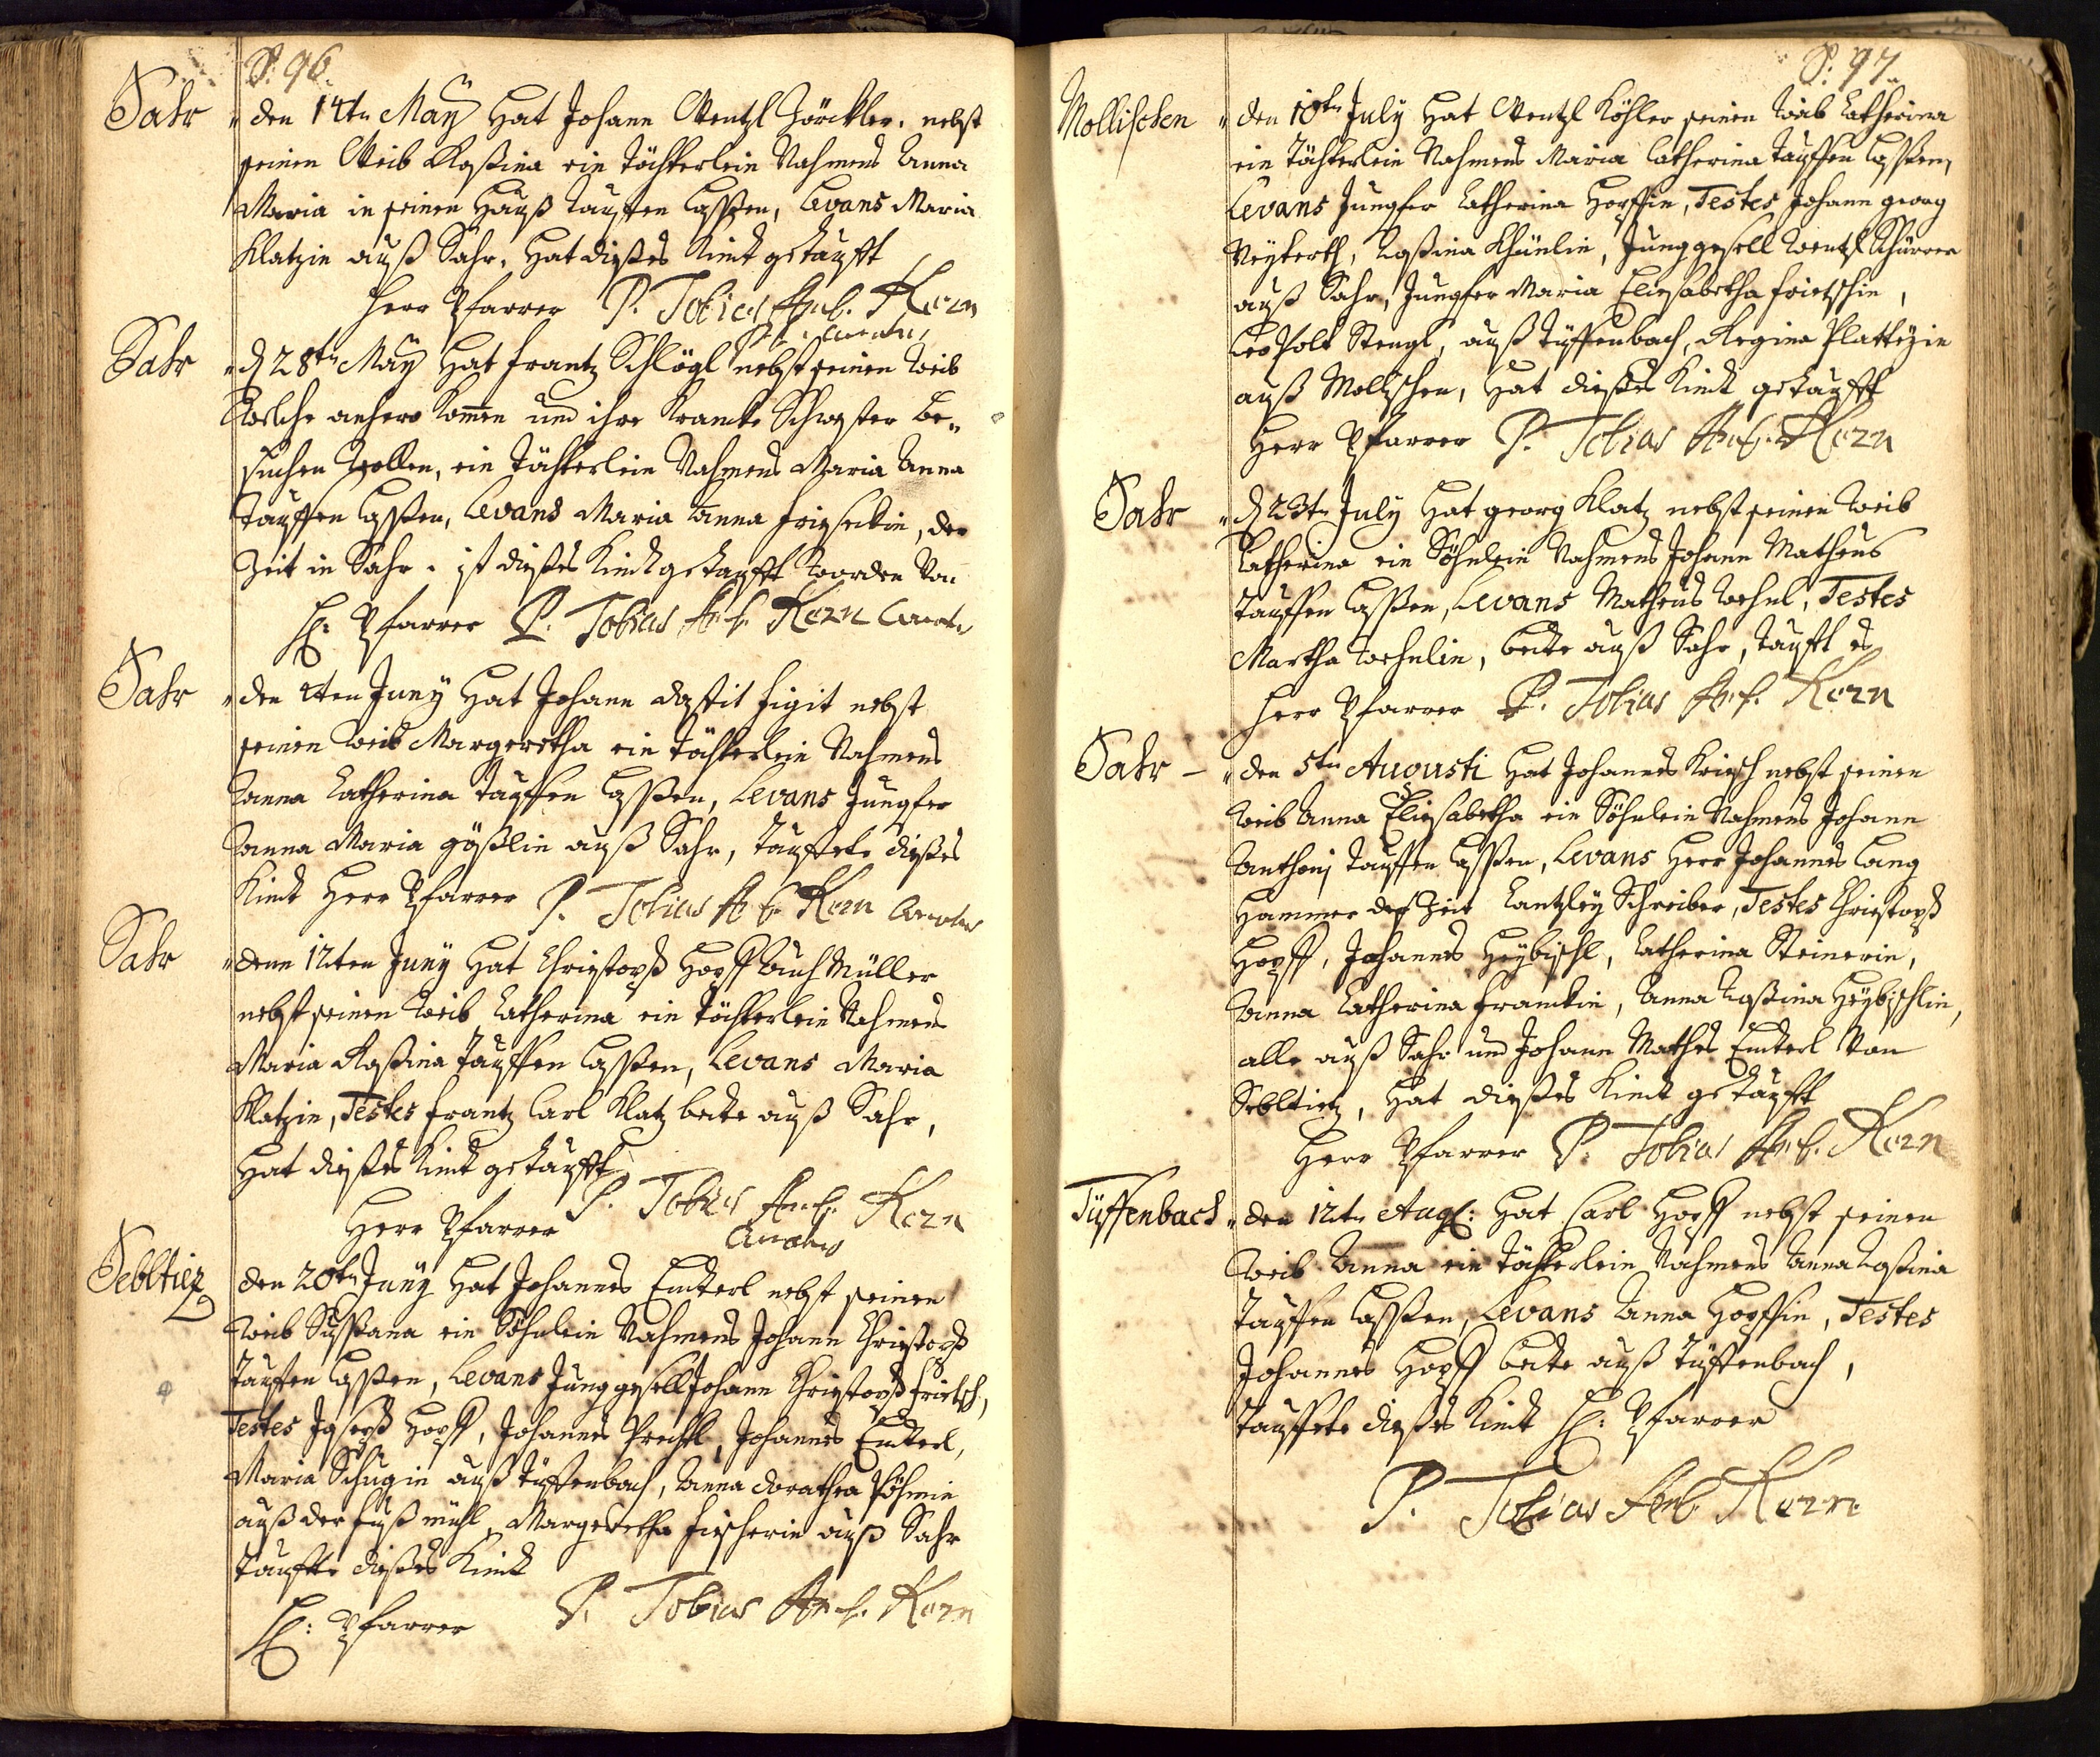 S: 96.
Sahr
den 14tn May Hat Johann Wentzl Zörckler. nebst
seinen Weib Rosina ein Töchterlein Nahmens Anna
Maria in seinen Hauß Tauffen Laßen, Levans Maria
Klatzin auß Sahr. Hat dießes Kindt getaufft
Herr Pfarrer P. Tobias Amb. Kern
Curatus
Sahr
d 28tn May Hat Frantz Schlögl nebst seinen Weib
Welche anhero komen und ihre krancke Schwester be„
suchen Wollen, ein Töchterlein Nahmens Maria Anna
Tauffen Laßen, Levans Maria Anna, der
Zeit in Sahr. ist dießes Kindt getaufft Worden Von
H: Pfarrer P. Tobias Amb. Kern Curatus
Sahr
den 4ten Juny Hat Johann figit nebst
seinen Weib Margeretha ein Töchterlein Nahmens
Anna Catherina Tauffen Laßen, Levans Jungfer
Anna Maria gößlin auß Sahr, Tauffete dießes
Kindt Herr Pfarrer P. Tobias Amb. Kern Curatus
Sahr
denn 12ten Juny Hat Christoph Hopff Müller
nebst seinen Weib Catherina ein Töchterlein Nahmens
Maria Rosina Tauffen Laßen, Levans Maria
Klatzin, Testes Frantz Carl Klatz beite auß Sahr,
Hat dießes Kindt getaufft
Herr Pfarrer P. Tobias Amb. Kern
Curatus
Sebltiez
den 20tn Juny Hat Johannes Enterl nebst seinen
Weib Sussana ein Söhnlein Nahmens Johann Christoph
Tauffen Laßen, Levans Junggesell Johann Christoph Frietsch,
Testes Joseph Hopff, Johannes Prechtl, Johannes Enterl,
Maria Schugin auß Tüffenbach, Anna Dorathea Pöhmin
auß der fuß mühl, Margeretha Fischerin auß Sahr
Tauffte dießes Kindt
H: Pfarrer P. Tobias Amb. Kern
S: 97.
Mollischen
den 10tn July Hat Wentzl Köhler seinen Weib Catherina
ein Töchterlein Nahmens Maria Catherina Tauffen Laßen,
Levans Jungfer Catherina Hopffin, Testes Johann georg
Neyterth, Rosina Khünlin, Junggesell Wentzl Schürrer
auß Sahr, Jungfer Maria Eliesabetha Frietschin,
Leopolt Stengl, auß Tüffenbach, Regina Plattizin
auß Mollischen, Hat dießes Kindt getaufft
Herr Pfarrer P. Tobias Amb. Kern
Sahr
d 23tn July Hat georg Klatz nebst seinen Weib
Catherina ein Söhnlein Nahmens Johann Matheus
Tauffen Laßen, Levans Matheus Wehnl, Testes
Martha Wehnlin, beite auß Sahr, Taufft es
Herr Pfarrer P. Tobias Amb. Kern
Sahr
den 5tn Augusti Hat Johannes Kriesch nebst seinen
Weib Anna Eliesabetha ein Söhnlein Nahmens Johann
Anthonj Tauffen Laßen, Levans Herr Johannes Lang
Hammer der Zeit Cantzley Schreiber, Testes Christoph
Hopff, Johannes Heybischl, Catherina Steinerin,
Anna Catherina Franckin, Anna Rosina Heybischlin,
alle auß Sahr und Johann Mathes Enterl Von
Sebltietz, Hat dießes Kindt getaufft
Herr Pfarrer P. Tobias Amb. Kern
Tüffenbach
den 12tn Aug: Hat Carl Hopff nebst seinen
Weib Anna ein Töchterlein Nahmens Anna Rosina
Tauffen Laßen, Levans Anna Hopffin, Testes
Johannes Hopff beite auß Tüffenbach,
Tauffete dießes Kindt H: Pfarrer
P. Tobias Amb. Kern